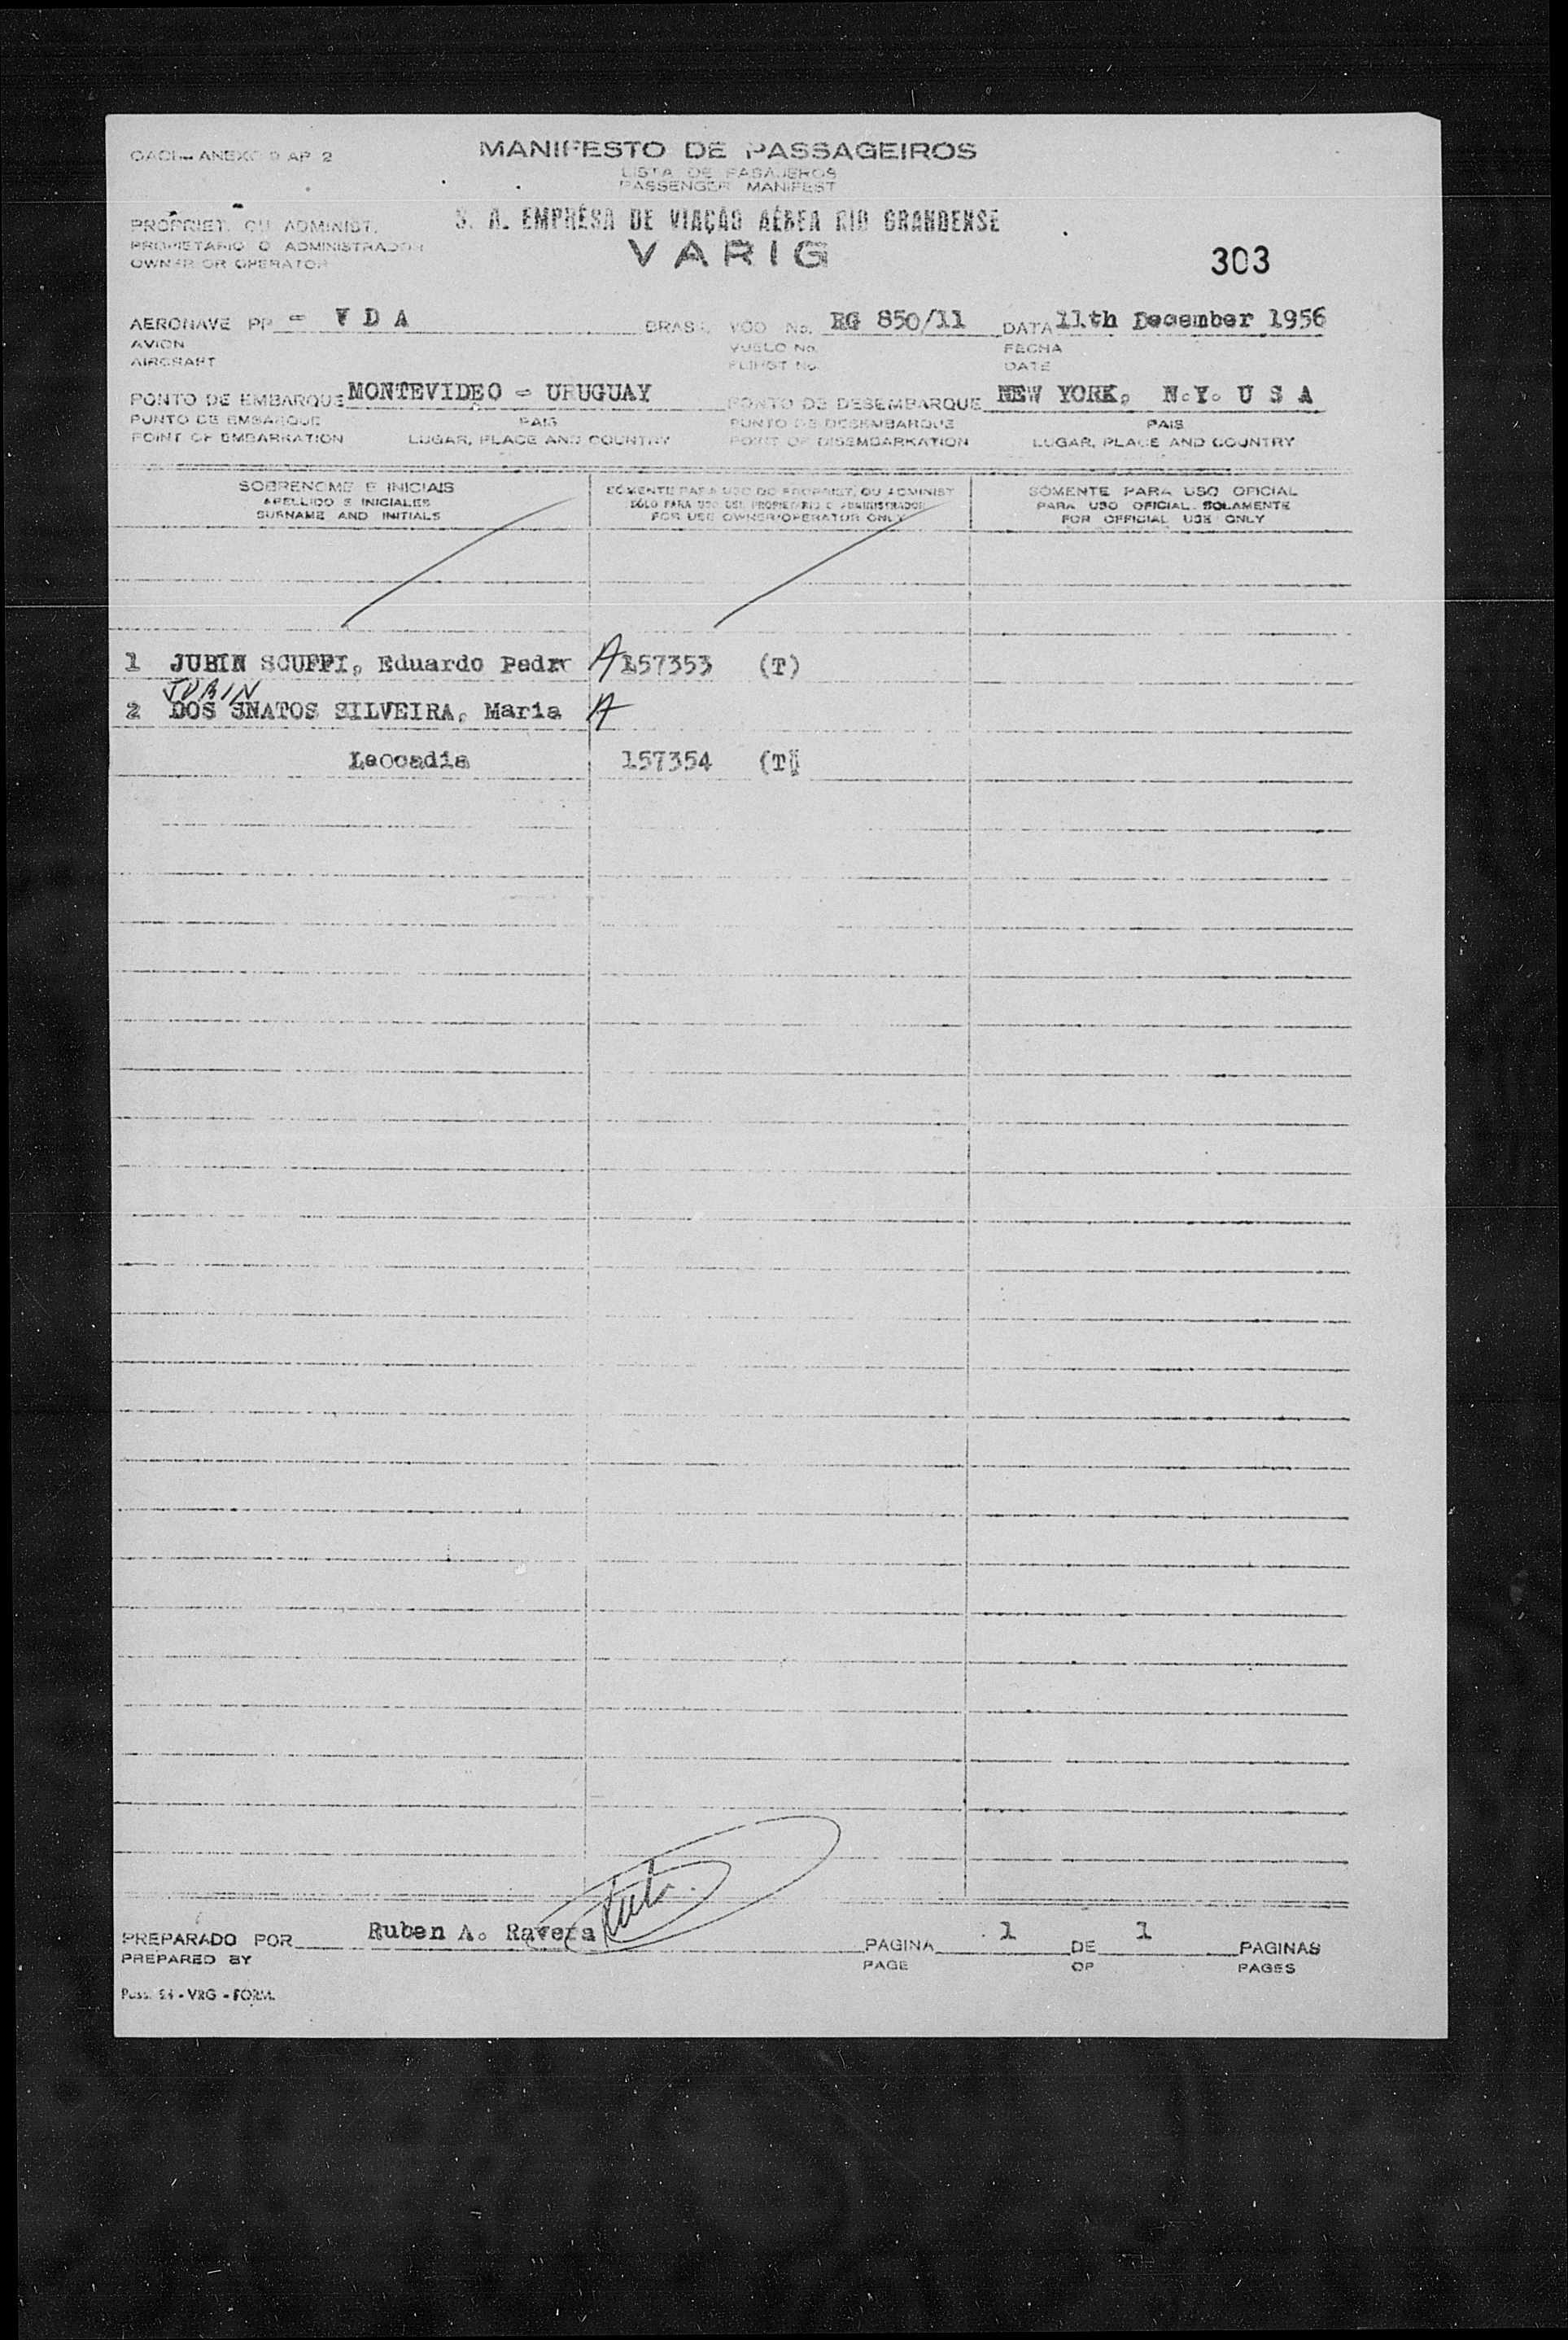 OACI - ANEXO 9 AP 2
MANIFESTO DE PASSAGEIROS
LISTA DE PASAJEROS
PASSENGER MANIFEST
PROPRIET. OU ADMINIST.
PROPIETARIO O ADMINISTRADOR
OWNER OR OPERATOR
S. A. EMPRÊSA DE VIAÇÃO AÉREA RIO GRANDENSE
VARIG
303
AERONAVE PP - V D A BRASIL VOO No. RG 850/11 DATA 11th December 1956
AVION VUELO No. FECHA
AIRCRAFT FLIHGT No. DATE
PONTO DE EMBARQUE MONTEVIDEO - URUGUAY PONTO DE DESEMBARQUE NEW YORK, N.Y. U S A
PUNTO DE EMBARQUE PAIS PUNTO DE DESEMBARQUE PAIS
POINT OF EMBARKATION LUGAR, PLACE AND COUNTRY POINT OF DISEMBARKATION LUGAR, PLACE AND COUNTRY
SOBRENOME E INICIAIS
APELLIDO E INICIALES
SURNAME AND INITIALS
SÓMENTE PARA USO DO PROPRIST. OU ADMINIST
SÓLO PARA USO DEL PROPIETARIO O ADMINISTRADOR
FOR USE OWNER/OPERATOR ONLY
SÓMENTE PARA USO OFICIAL
PARA USO OFICIAL SOLAMENTE
FOR OFFICIAL USE ONLY
1 JUBIN SCUFFI, Eduardo Pedro A 157353 (T)
JUBIN
2 DOS SNATOS SILVEIRA, Maria A
Leocadia 157354 (T)
PREPARADO POR Ruben A. Ravera PAGINA 1 DE 1 PAGINAS
PREPARED BY PAGE OF PAGES
Pass. 24 - VRG - FORM.